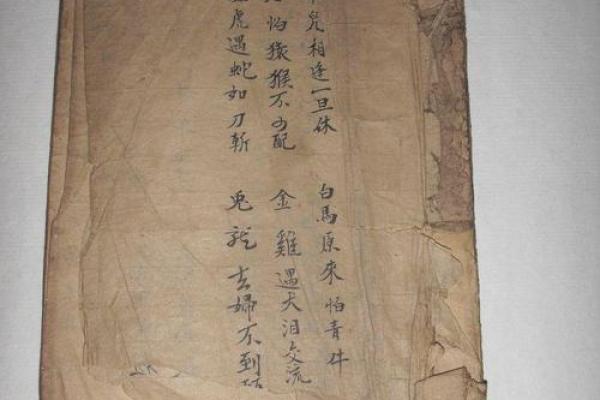 相逢一旦休　白馬原來怕青牛
怕猿猴不可配　金雞遇犬泪交流
虎遇蛇如刀斬　兎龍去婦不到